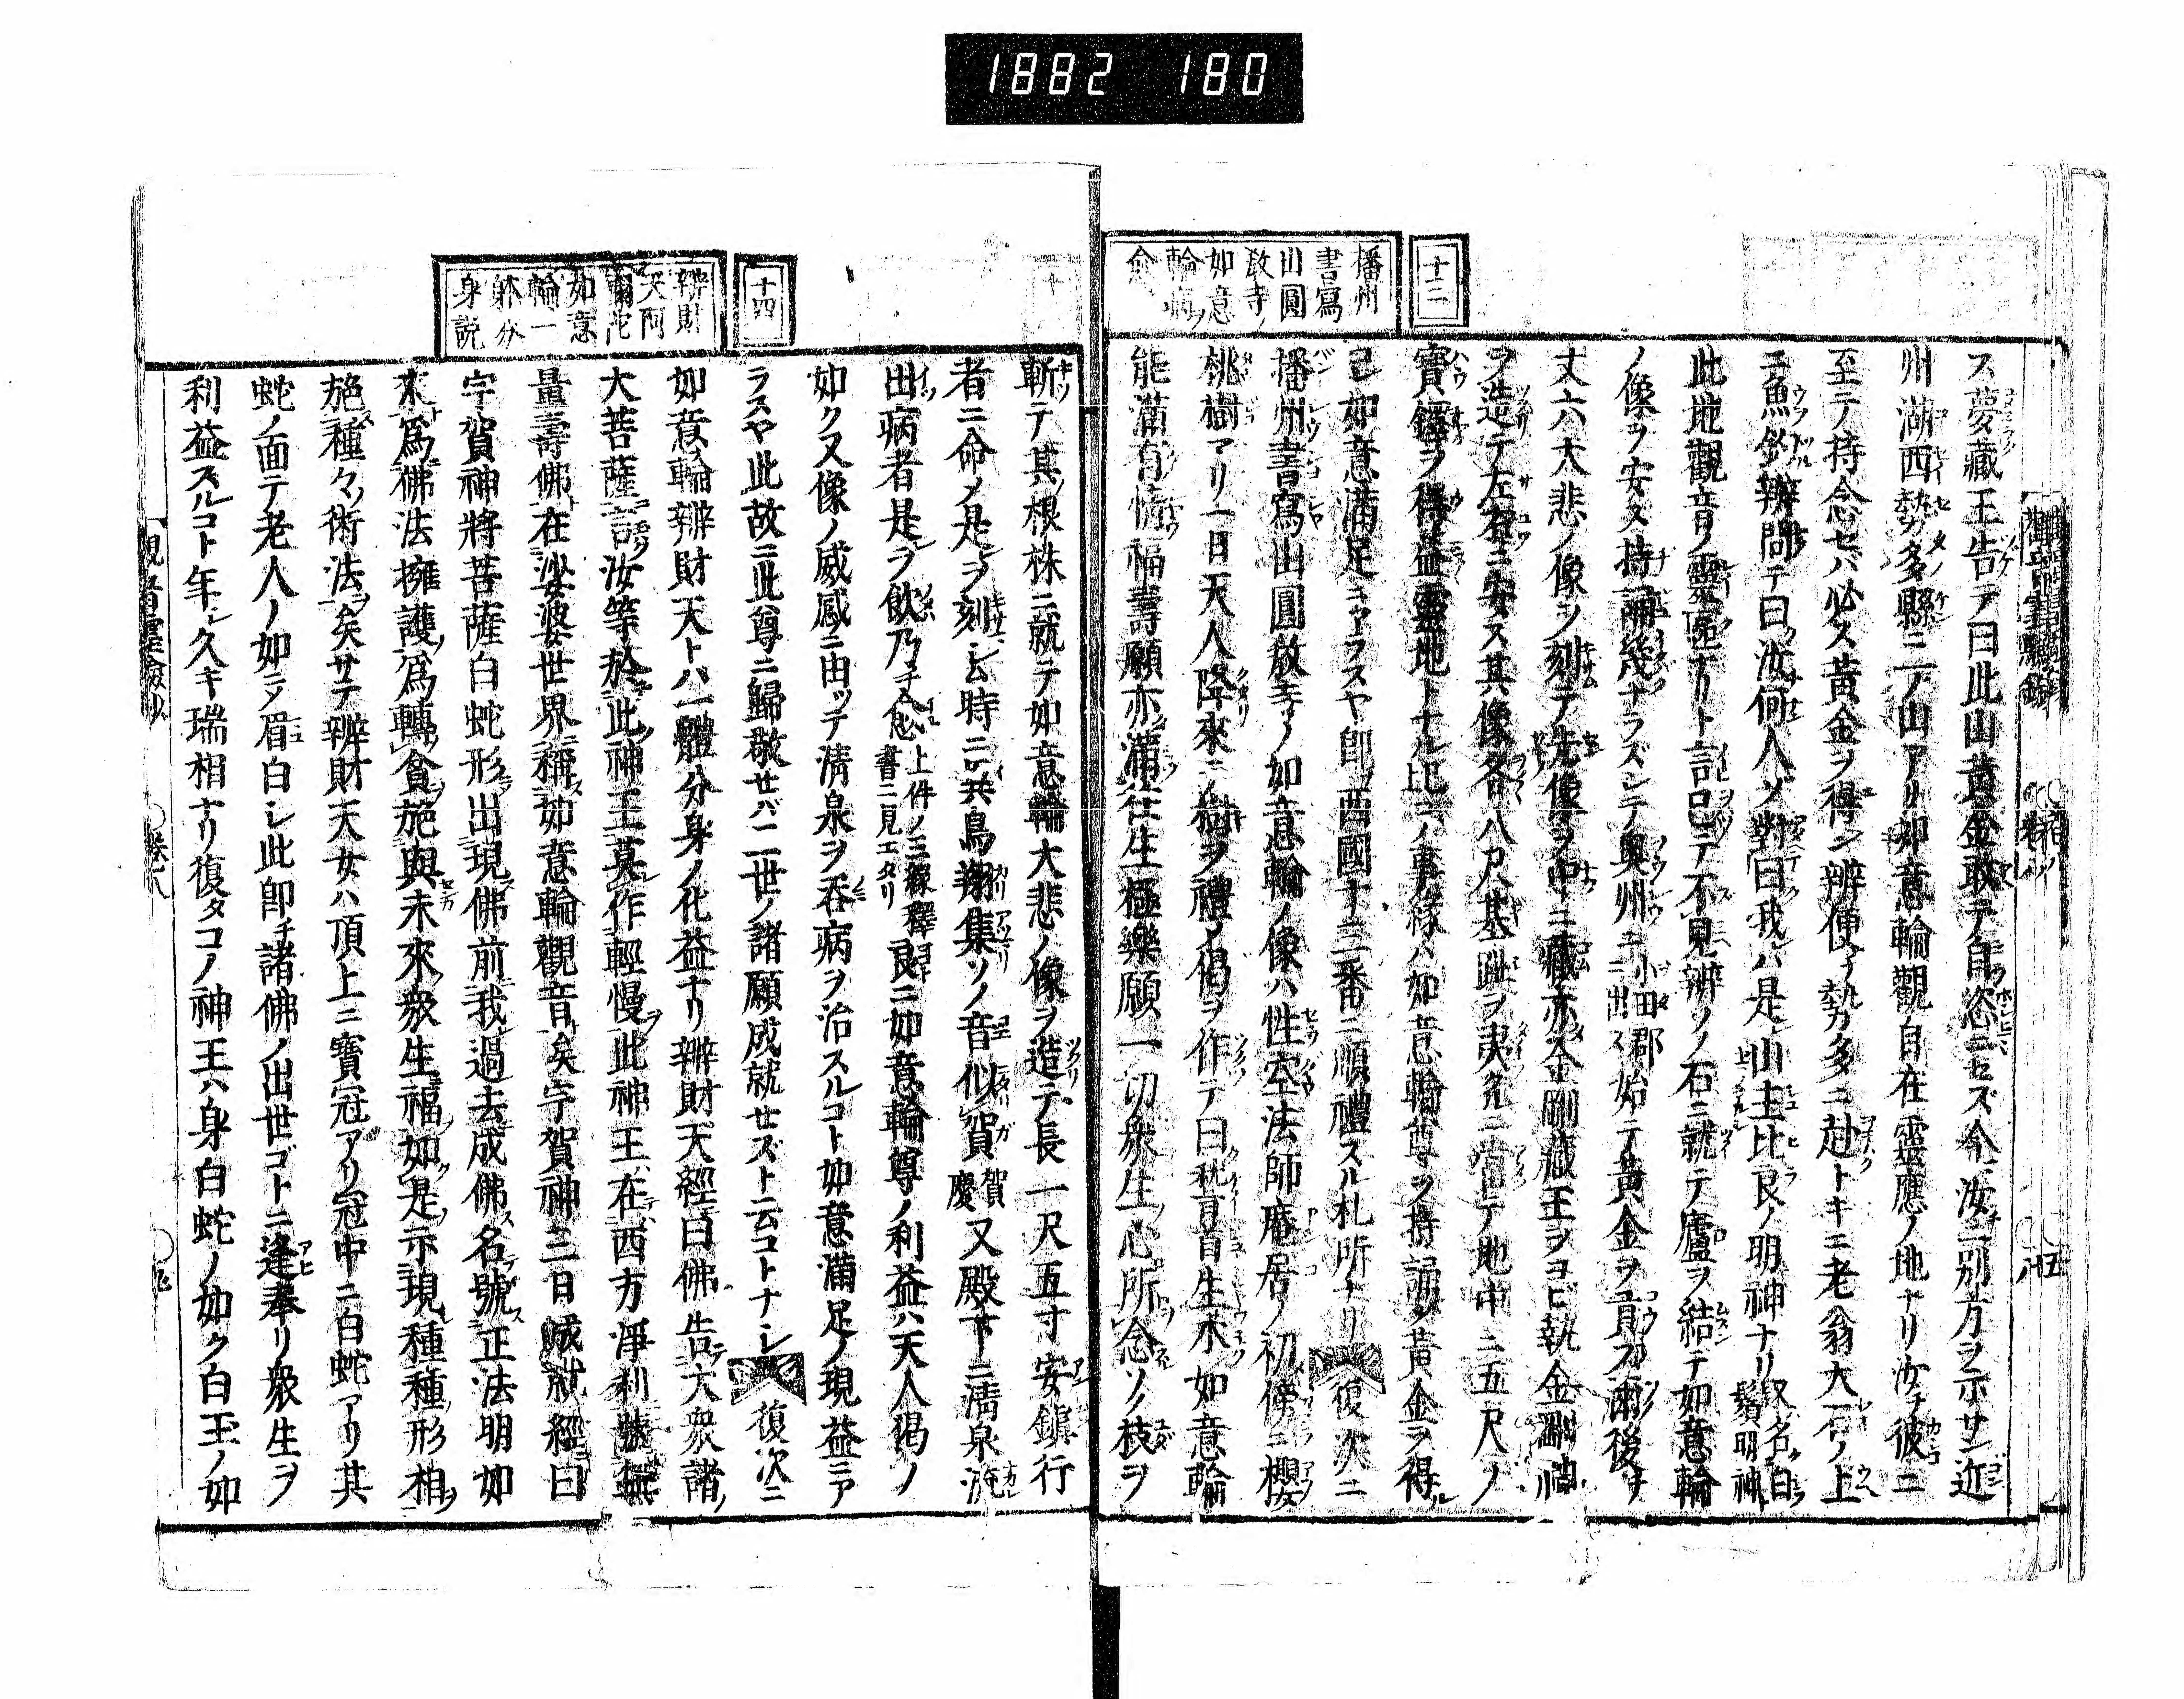 1882 180
十三
播州
書寫
山圓
敎寺ノ
如意
輪病ノ
愈
ス夢藏王告テ曰此山黃金敢テ自恣ニセズ今汝ニ別方ヲ示サン近
州湖西勢多縣ニ一ノ山アリ如意輪觀自在靈應ノ地ナリ汝チ彼ニ
至テ持念セバ必ス黃金ヲ得ン辨便チ勢多ニ赴トキニ老翁大石ノ上
ニ魚釣辨問テ曰汝何人ゾ對曰我ハ是山主比良ノ明神ナリ又名白鬚明神
此地觀音ノ靈區ナリト言已テ不見辨ソノ石ニ就テ廬ヲ結テ如意輪
ノ像ヲ安ス持誦幾ナラズシテ奧州ニ小田郡ニ出ス始テ黃金ヲ貢ス爾後チ
丈六大悲ノ像ヲ刻テ先像ヲ中ニ藏亦金剛藏王ヲコビ執金剛神
ヲ造テ左右ニ安ス其像各八尺基趾ヲ夷ルニ當テ地中ニ五尺ノ
寶鐸ヲ得益靈地トナル此ノ事緣ハ如意輪尊ヲ持誦ノ黃金ヲ得
已如意滿足ニアラスヤ卽西國十三番ニ順禮スル札所ナリ 復次ニ
播州書寫山圓敎寺ノ如意輪ノ像ハ性空法師庵居ノ初傍ニ櫻
桃樹アリ一日天人降來ニ樹ヲ禮ノ偈ヲ作テ曰稽首生木如意輪
能滿有情福壽願亦滿往生極樂願一切衆生心所念ソノ枝ヲ
十四
辨財
天阿
彌陀
如意
輪一
躰分
身説
斬テ其根株ニ就テ如意輪大悲ノ像ヲ造テ長一尺五寸安鎭行
者ニ命ノ是ヲ刻シム時ニ共鳥翔集ソノ音似賀賀慶又殿下ニ淸泉流
出病者是ヲ飮乃チ愈上件ノ三緣釋書ニ見エタリ良ニ如意輪尊ノ利益ハ天人偈ノ
如ク又像ノ威感ニ由ッテ淸泉ヲ呑病ヲ治スルコト如意滿足ノ現益ニア
ラスヤ此故ニ此尊ニ歸敬セバ二世ノ諸願成就セズト云コトナシ 復次ニ
如意輪辨財天トハ一體分身ノ化益ナリ辨財天經曰佛告大衆諸
大菩薩言汝等於此神王莫作輕慢此神王在西方淨刹號無
量壽佛在娑婆世界稱如意輪觀音矣宇賀神三日成就經曰
宇賀神將菩薩白蛇形出現佛前我過去成佛名號正法明如
來爲佛法擁護爲轉貪施與未來衆生福如是示現種種形相
施種々術法矣サテ辨財天女ハ頂上ニ寶冠アリ冠中ニ白蛇アリ其
蛇ノ面テ老人ノ如ニノ眉白シ此卽チ諸佛ノ出世ゴトニ逢奉リ衆生ヲ
利益スルコト年シ久キ瑞相ナリ復タコノ神王ハ身白蛇ノ如ク白玉ノ如